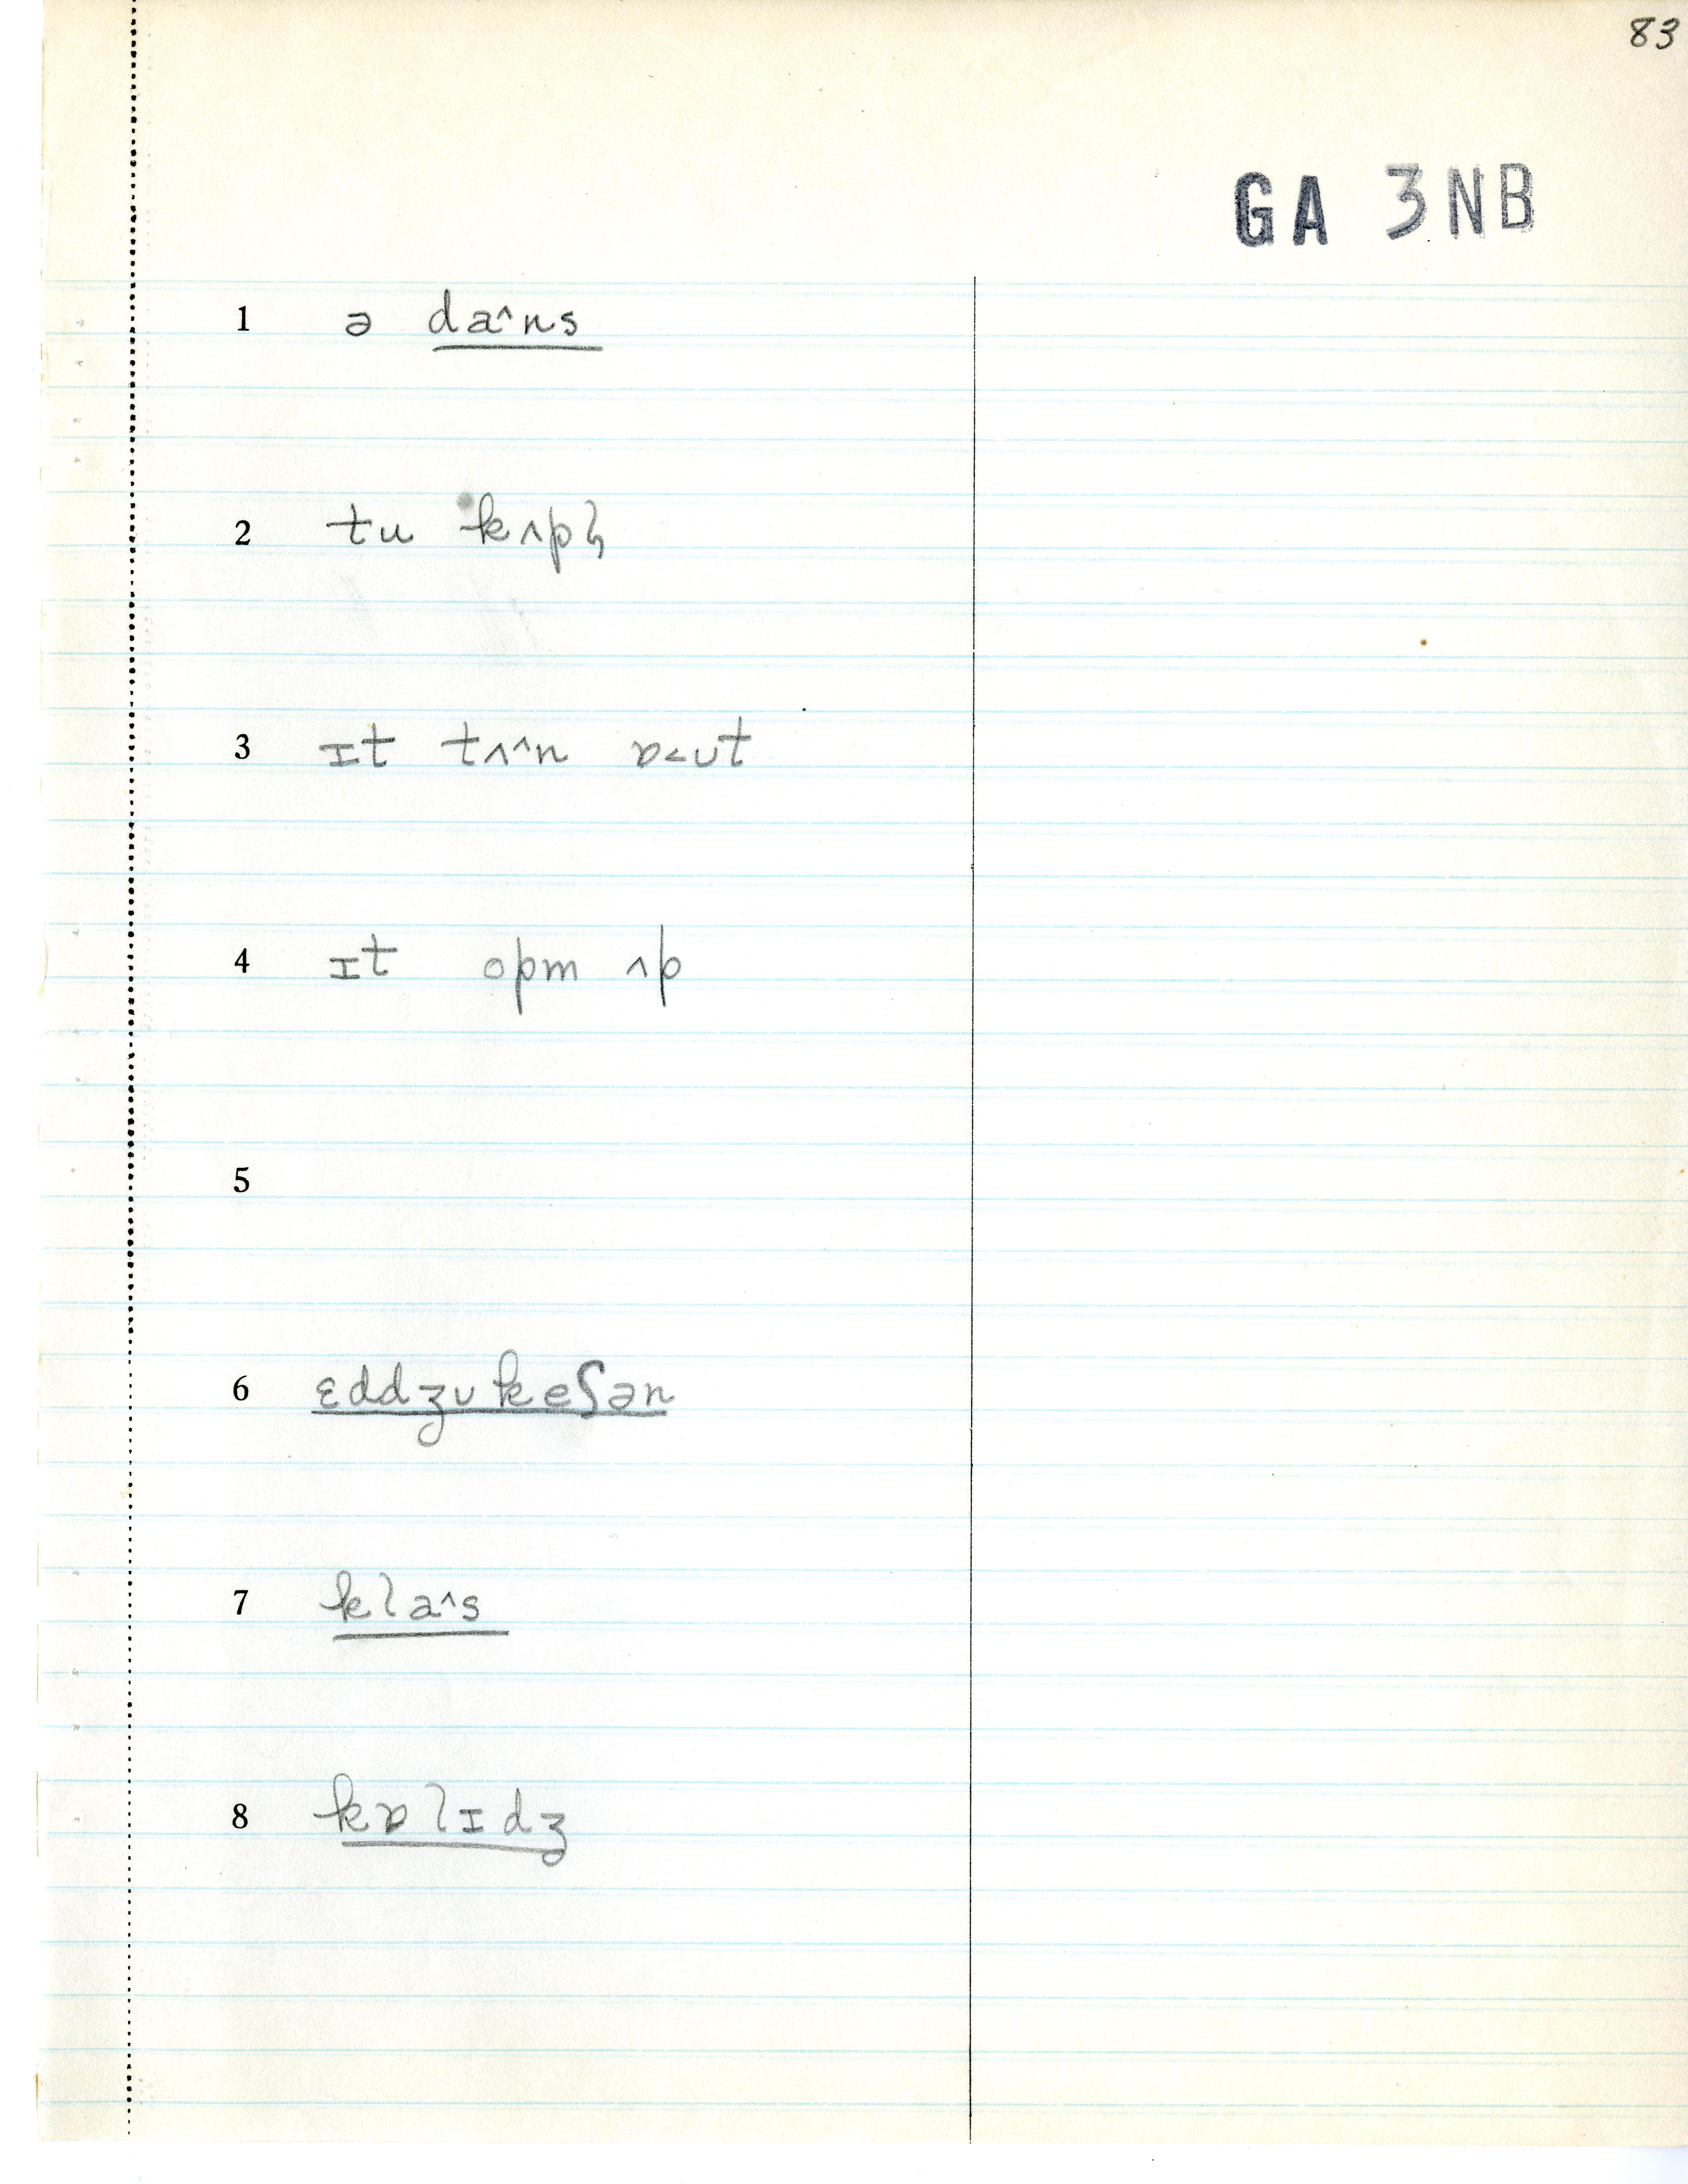 83
GA 3NB
1 ə da^ns
2 tu kʌpḷ
3 ɪt tʌ^n ɒ<ʊt
4 ɪt opm ʌp
5
6 ɛddʒʊkeʃən
7 kla^s
8 kɒlɪdʒ